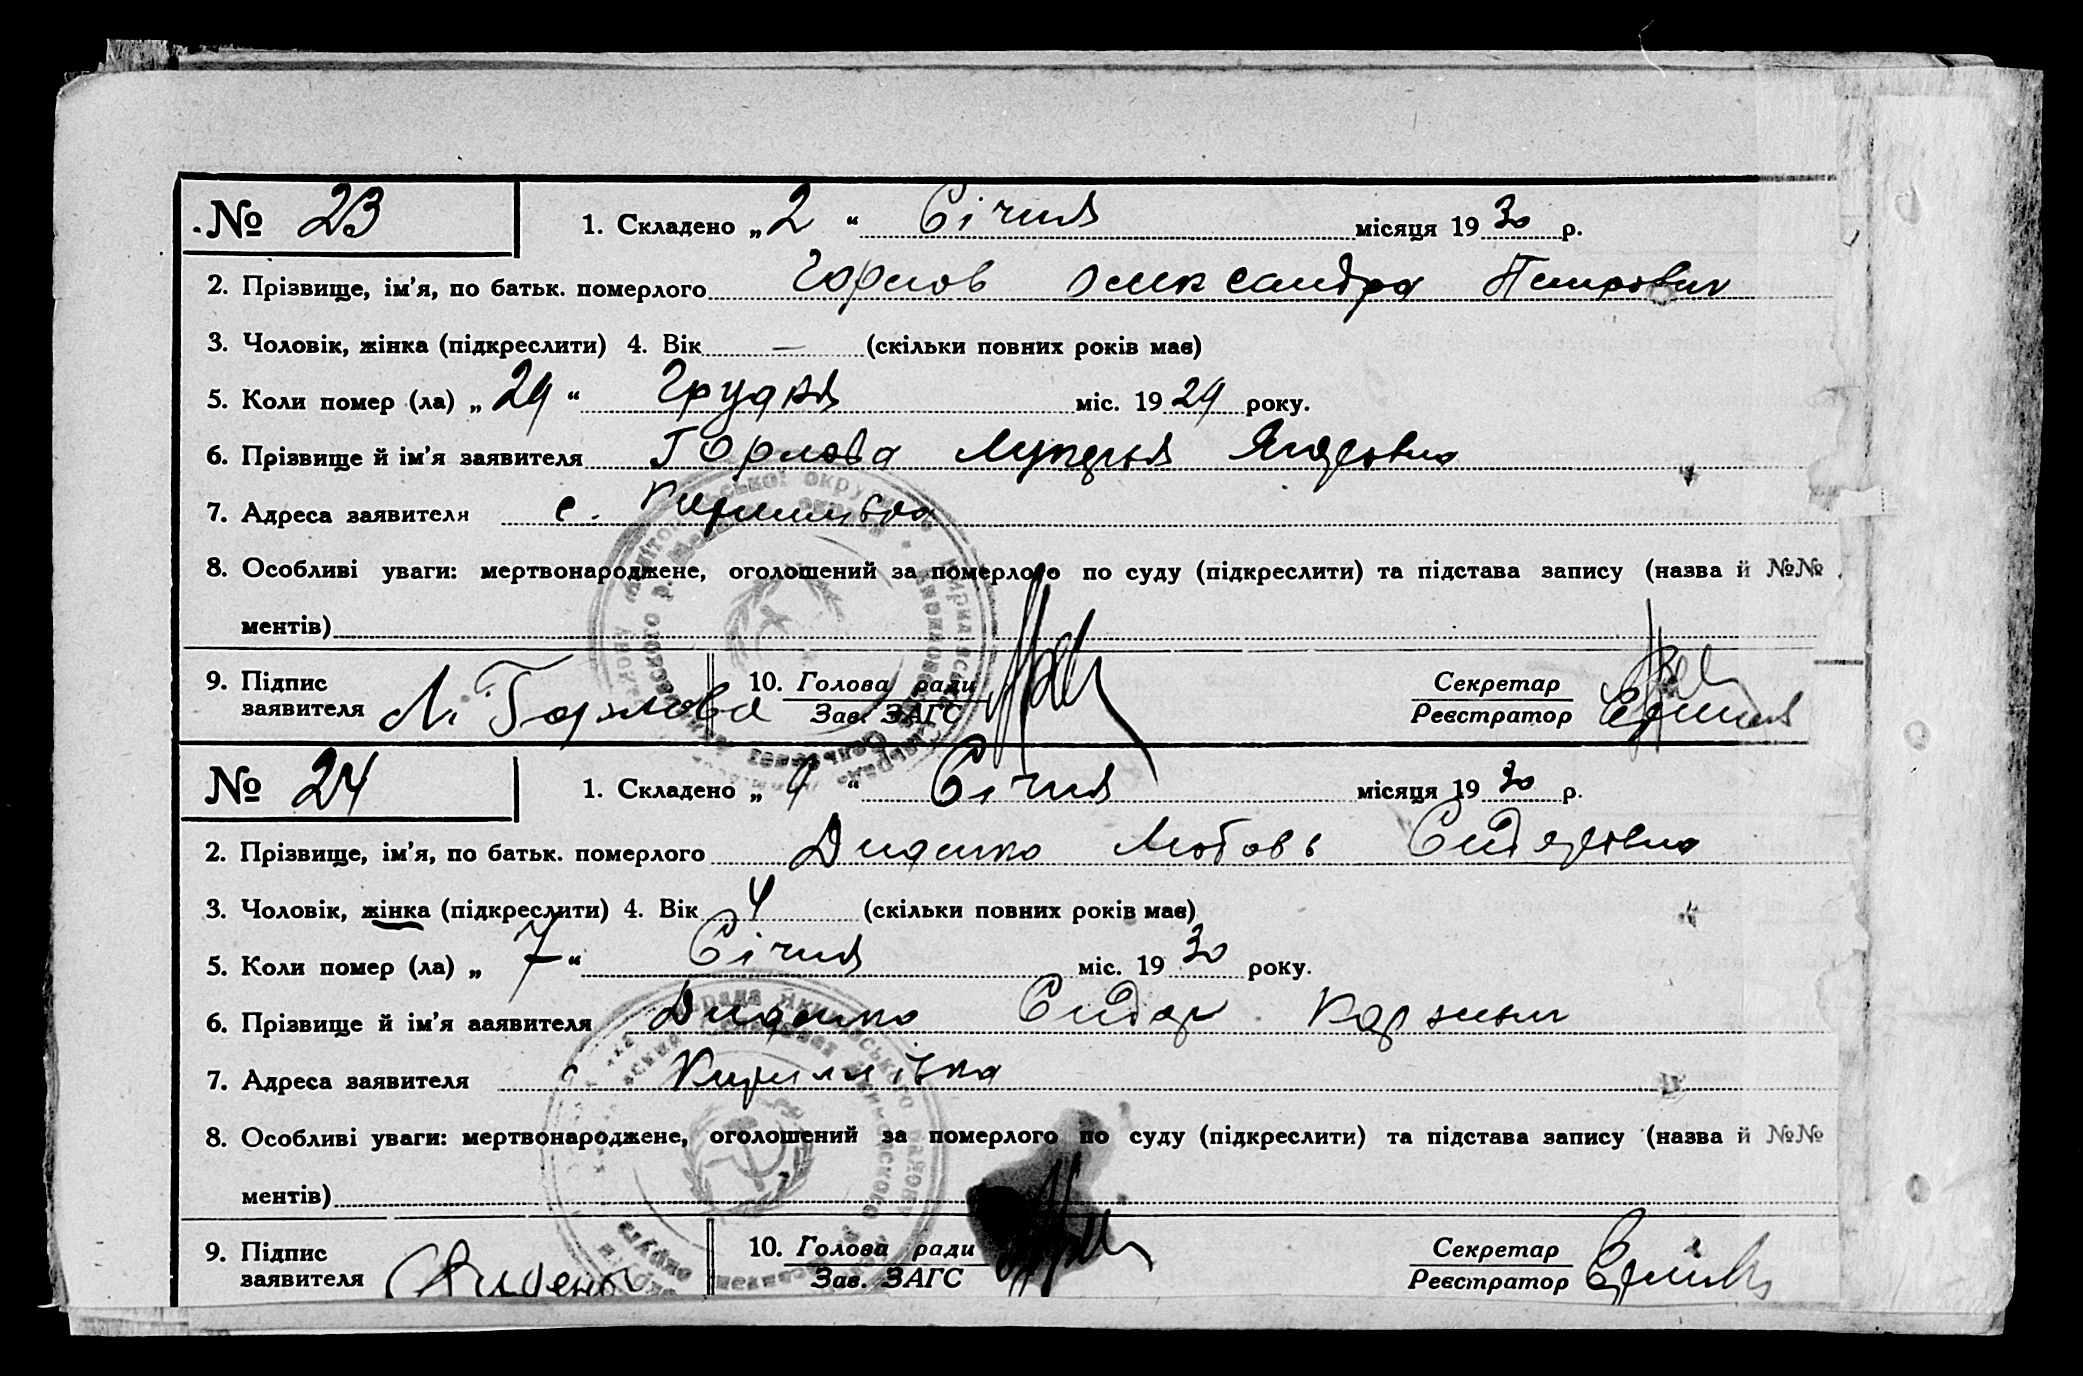 № 23 1. Складено „ 2 “ Січня місяця 19 30 р.
2. Прізвище, ім'я, по батьк. померлого Горлов Олександра Петрович
3. Чоловік, жінка (підкреслити) 4. Вік — (скільки повних років має)
5. Коли помер (ла) „ 29 “ Грудня міс. 19 29 року.
6. Прізвище й ім'я заявителя Горлова
7. Адреса заявителя с. Кирилівка
8. Особливі уваги: мертвонароджене, оголошений за померлого по суду (підкреслити) та підстава запису (назва й №№
ментів)
9. Підпис заявителя Л. Горлова 10. Голова ради Секретар
Зав. ЗАГС Реєстратор
№ 24 1. Складено „ 9 “ Січня місяця 19 30 р.
2. Прізвище, ім'я, по батьк. померлого Диденко Любовь Сидоровна
3. Чоловік, жінка (підкреслити) 4. Вік 4 (скільки повних років має)
5. Коли помер (ла) „ 7 “ Січня міс. 19 30 року.
6. Прізвище й ім'я заявителя Диденко Сидор
7. Адреса заявителя с Кирилівка
8. Особливі уваги: мертвонароджене, оголошений за померлого по суду (підкреслити) та підстава запису (назва й №№
ментів)
9. Підпис заявителя 10. Голова ради Секретар
Зав. ЗАГС Реєстратор